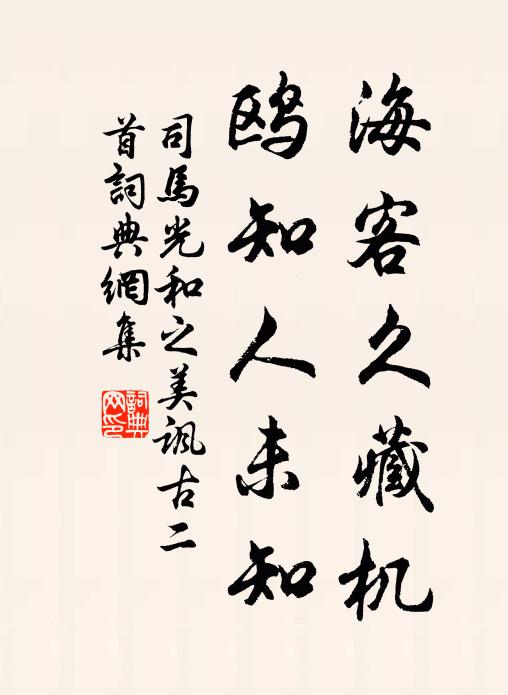 海客久藏机
鸥知人未知
司馬光和之美讽古二
首詞典網集
詞典网印